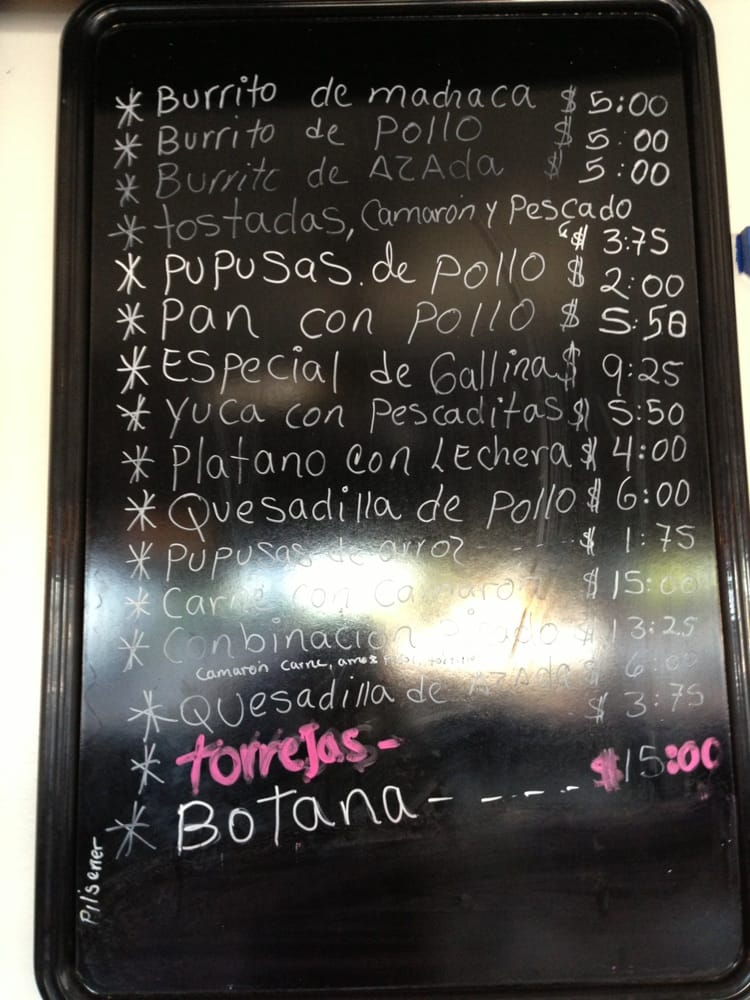 * Burrito de machaca $ 5:00
* Burrito de Pollo $ 5:00
* Burrito de AZAda $ 5:00
* tostadas, Camaron y Pescado
$ 3:75
* PUPUSAS. de pollo $ 2:00
* Pan con pollo $ 5:50
* ESpecial de Gallina $ 9:25
* Yuca con Pescaditas $ 5:50
* Platano con LEchera $ 4:00
* Quesadilla de pollo $ 6:00
* PUPUSas de arroz ----- $ 1:75
* Carne con Camaron $ 15:00
* Conbinacion Picado $ 13:25
Camaron Carne, arros
* QUesadilla de AZAda $ 6:00
* torrejas - $ 3:75
* Botana - - - - - $ 15:00
Pilsener